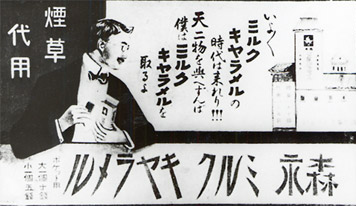 いよ〱
ミルク
キヤラメルの
時代は来れり!!!
天二物を與へずんば
僕はミルク
キヤラメルを
取るよ
煙草
代用
森永 ミルク キヤラメル
ポケット用
大一個十銭
小一個五銭